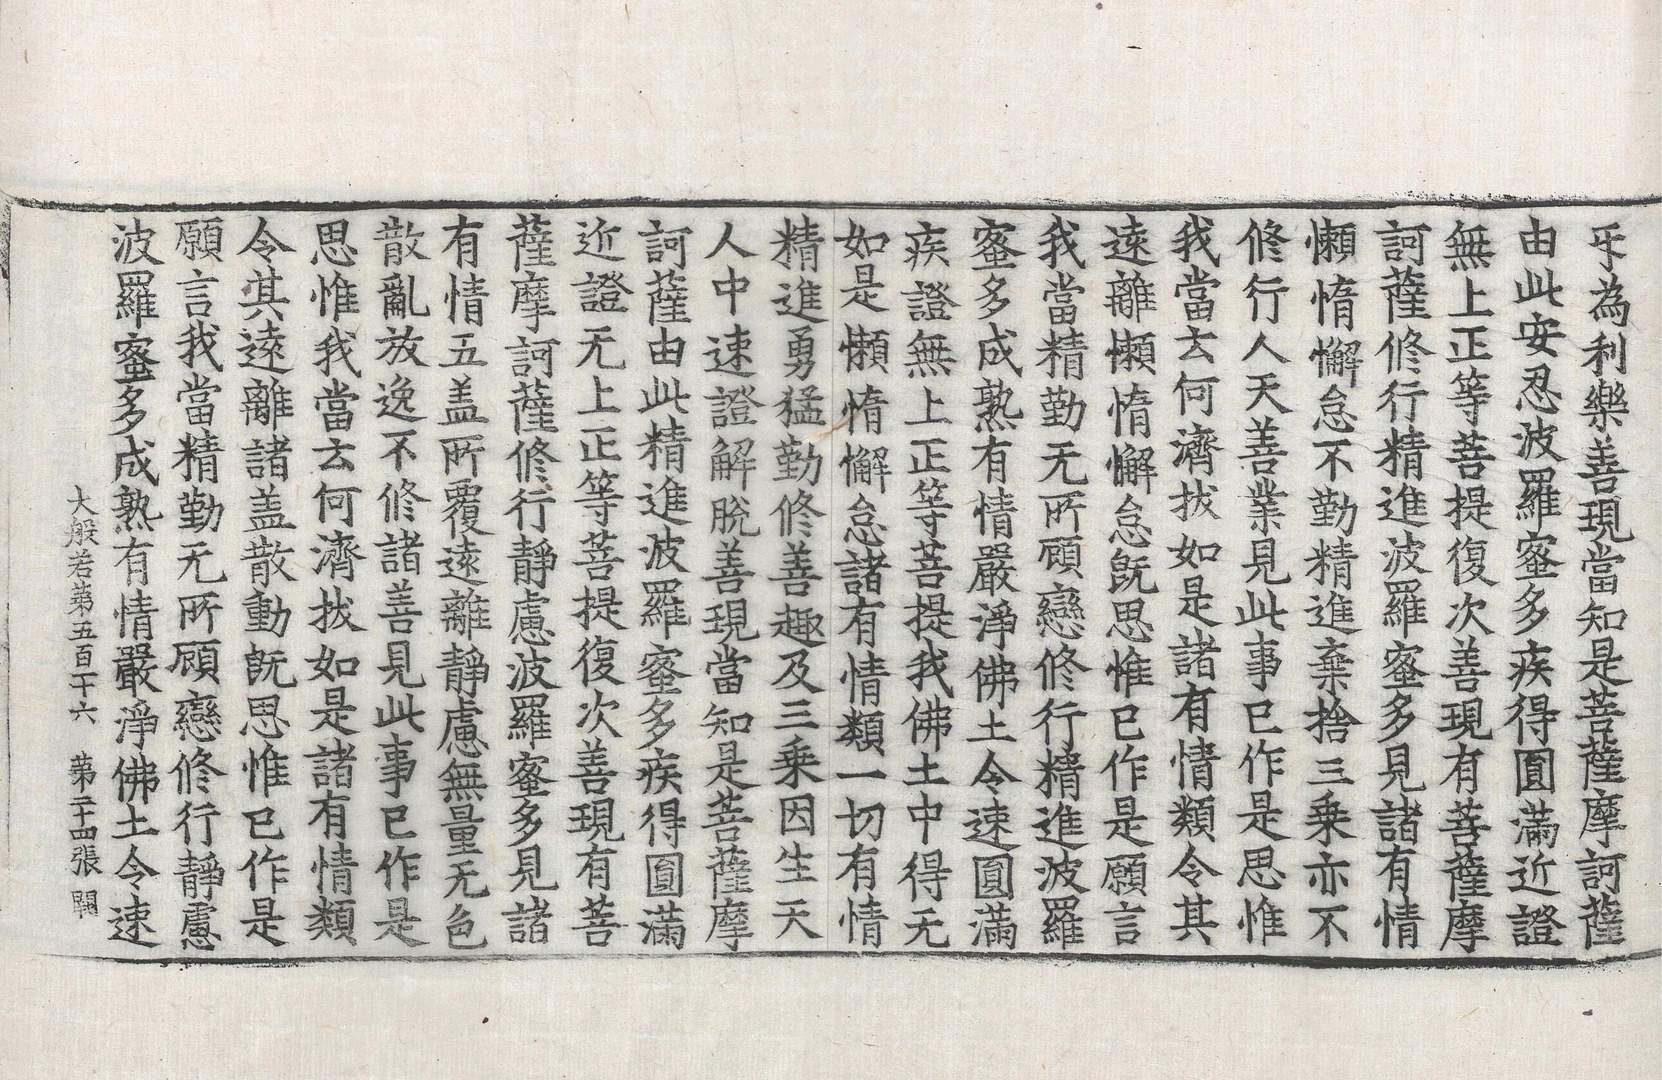 㸦為利樂善現當知是菩薩摩訶薩
由此安忍波羅蜜多疾得圓滿近證
無上正等菩提復次善現有菩薩摩
訶薩修行精進波羅蜜多見諸有情
懶惰懈怠不勤精進棄捨三乘亦不
修行人天善業見此事已作是思惟
我當云何濟拔如是諸有情類令其
遠離懶惰懈怠旣思惟已作是願言
我當精勤无所顧戀修行精進波羅
蜜多成熟有情嚴淨佛土令速圓滿
疾證無上正等菩提我佛土中得无
如是懶惰懈怠諸有情類一切有情
精進勇猛勤修善趣及三乘因生天
人中速證解脫善現當知是菩薩摩
訶薩由此精進波羅蜜多疾得圓滿
近證无上正等菩提復次善現有菩
薩摩訶薩修行靜慮波羅蜜多見諸
有情五盖所覆遠離靜慮無量无色
散亂放逸不修諸善見此事已作是
思惟我當云何濟拔如是諸有情類
令其遠離諸盖散動旣思惟已作是
願言我當精勤无所顧戀修行靜慮
波羅蜜多成熟有情嚴淨佛土令速
大般若第五百十六 第二十四張 闕